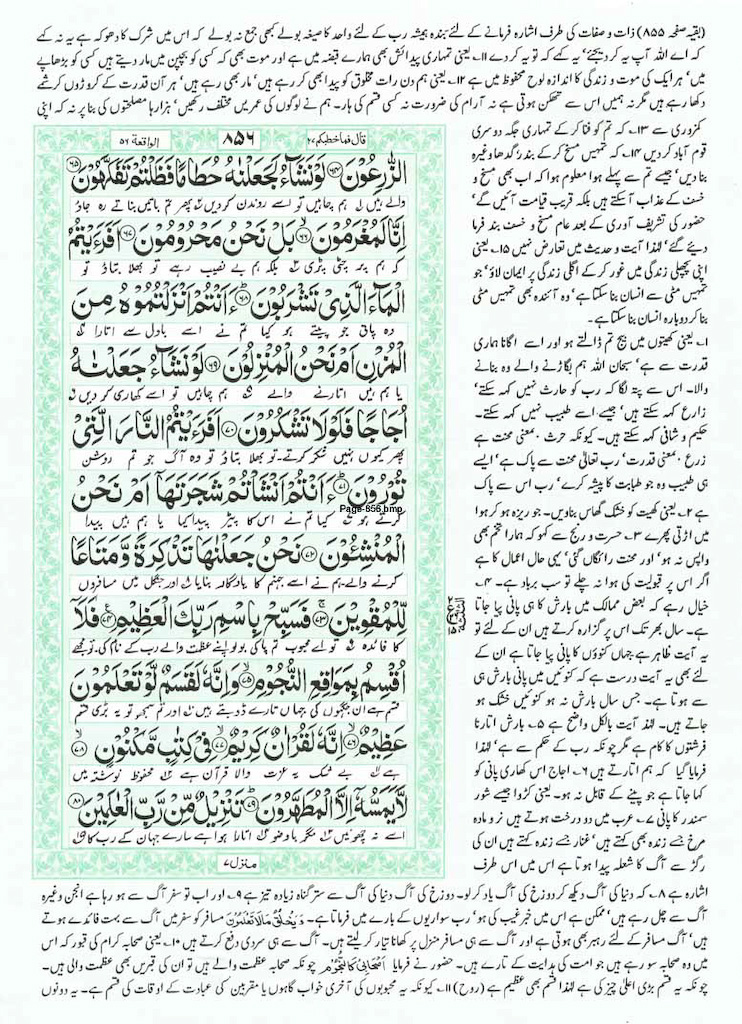 (بقیہ صفحہ ۸۵۵) ذات و صفات کی طرف اشارہ فرمانے کے لئے بندہ ہمیشہ رب کے لئے واحد کا صیغہ بولے کبھی جمع نہ بولے کہ اس میں شرک کا دھوکہ ہے یہ نہ کہے
کہ اے اللہ آپ یہ کر دیجئے' یہ کہے کہ تو یہ کر دے ۱۱؎ یعنی تمہاری پیدائش بھی ہمارے قبضہ میں ہے اور موت بھی کہ کسی کو بچپن میں مار دیتے ہیں کسی کو بڑھاپے
میں' ہر ایک کی موت و زندگی کا اندازہ لوح محفوظ میں ہے ۱۲؎ یعنی ہم دن رات مخلوق کو پیدا بھی کر رہے ہیں' مار بھی رہے ہیں' ہر آن قدرت کے کروڑوں کرشمے
دکھا رہے ہیں مگر نہ ہمیں اس سے تھکن ہوتی ہے نہ آرام کی ضرورت نہ کسی قسم کی ہار۔ ہم نے لوگوں کی عمریں مختلف رکھیں' ہزارہا مصلحتوں کی بنا پر نہ کہ اپنی
کمزوری سے ۱۳؎ کہ تم کو فنا کر کے تمہاری جگہ دوسری
قوم آباد کر دیں ۱۴؎ کہ تمہیں مسخ کر کے بندر گدھا وغیرہ
بنا دیں' جیسے تم سے پہلے ہوا معلوم ہوا کہ اب بھی مسخ و
خسف کے عذاب آ سکتے ہیں بلکہ قریب قیامت آئیں گے'
حضور کی تشریف آوری کے بعد عام مسخ و خسف بند فرما
دیئے گئے' لہٰذا آیت و حدیث میں تعارض نہیں ۱۵؎ یعنی
اپنی پچھلی زندگی میں غور کر کے اگلی زندگی پر ایمان لاؤ' جو
تمہیں مٹی سے انسان بنا سکتا ہے' وہ آئندہ بھی تمہیں مٹی
بنا کر دوبارہ انسان بنا سکتا ہے۔
۱؎ یعنی کھیتوں میں بیج تم ڈالتے ہو اور اسے اگانا ہماری
قدرت سے ہے' سبحان اللہ ہم بگاڑنے والے وہ بنانے
والا۔ اس سے پتہ لگا کہ رب کو حارث نہیں کہہ سکتے'
زارع کہہ سکتے ہیں' جیسے اسے طبیب نہیں کہہ سکتے۔
حکیم و شافی کہہ سکتے ہیں۔ کیونکہ حرث بمعنی محنت ہے
زرع بمعنی قدرت' رب تعالیٰ محنت سے پاک ہے' ایسے
ہی طبیب وہ جو طبابت کا پیشہ کرے' رب اس سے پاک
ہے ۲؎ یعنی کھیت کو خشک گھاس بنا دیں۔ جو ریزہ ہو کر ہوا
میں اڑتی پھرے ۳؎ حسرت و رنج سے کہو کہ ہمارا تخم بھی
واپس نہ ہوا' اور محنت رائیگاں گئی' یہی حال اعمال کا ہے
اگر اس پر قبولیت کی ہوا نہ چلے تو سب برباد ہے۔ ۴؎
خیال رہے کہ بعض ممالک میں بارش کا ہی پانی پیا جاتا
ہے۔ سال بھر تک اس پر گزارہ کرتے ہیں ان کے لئے تو
یہ آیت ظاہر ہے جہاں کنوؤں کا پانی پیا جاتا ہے ان کے
لئے بھی یہ آیت درست ہے کہ کنوئیں میں پانی بارش ہی
سے ہوتا ہے۔ جس سال بارش نہ ہو کنوئیں خشک ہو
جاتے ہیں۔ لہٰذا آیت بالکل واضح ہے ۵؎ بارش اتارنا
فرشتوں کا کام ہے مگر چونکہ رب کے حکم سے ہے' لہٰذا
فرمایا گیا کہ ہم اتارتے ہیں ۶؎ اجاج اس کھاری پانی کو
کہا جاتا ہے جو پینے کے قابل نہ ہو۔ یعنی کڑوا جیسے شور
سمندر کا پانی ۷؎ عرب میں دو درخت ہوتے ہیں نر و مادہ
مرخ جسے زندہ بھی کہتے ہیں' عفار جسے زندہ کہتے ہیں ان کی
رگڑ سے آگ کا شعلہ پیدا ہوتا ہے اس میں اس طرف
قال فما خطبکم ۲۷
۸۵۶
الواقعۃ ۵۶
الزّٰرِعُوْنَ ﴿۶۴﴾ لَوْ نَشَآءُ لَجَعَلْنٰهُ حُطَامًا فَظَلْتُمْ تَفَكَّهُوْنَ ﴿۶۵﴾
والے ہیں ہم چاہیں تو اسے روندن کر دیں پھر تم باتیں بناتے رہ جاؤ
اِنَّا لَمُغْرَمُوْنَ ﴿۶۶﴾ بَلْ نَحْنُ مَحْرُوْمُوْنَ ﴿۶۷﴾ اَفَرَءَيْتُمُ
کہ ہم پر چٹی پڑی بلکہ ہم بے نصیب رہے تو بھلا بتاؤ تو
الْمَآءَ الَّذِیْ تَشْرَبُوْنَ ﴿۶۸﴾ ءَاَنْتُمْ اَنْزَلْتُمُوْهُ مِنَ
وہ پانی جو پیتے ہو کیا تم نے اسے بادل سے اتارا
الْمُزْنِ اَمْ نَحْنُ الْمُنْزِلُوْنَ ﴿۶۹﴾ لَوْ نَشَآءُ جَعَلْنٰهُ
یا ہم ہیں اتارنے والے ہم چاہیں تو اسے کھاری کر دیں
اُجَاجًا فَلَوْلَا تَشْكُرُوْنَ ﴿۷۰﴾ اَفَرَءَيْتُمُ النَّارَ الَّتِیْ
پھر کیوں نہیں شکر کرتے۔ تو بھلا بتاؤ تو وہ آگ جو تم روشن
تُوْرُوْنَ ﴿۷۱﴾ ءَاَنْتُمْ اَنْشَاْتُمْ شَجَرَتَهَاۤ اَمْ نَحْنُ
Page-856.bmp
کرتے ہو کیا تم نے اس کا پیڑ پیدا کیا یا ہم ہیں پیدا
الْمُنْشِـُٔوْنَ ﴿۷۲﴾ نَحْنُ جَعَلْنٰهَا تَذْكِرَةً وَّ مَتَاعًا
کرنے والے۔ ہم نے اسے جہنم کا یادگار بنایا اور جنگل میں مسافروں
لِّلْمُقْوِیْنَ ﴿۷۳﴾ فَسَبِّحْ بِاسْمِ رَبِّكَ الْعَظِیْمِ ﴿۷۴﴾ فَلَاۤ
کا فائدہ تو اے محبوب تم پاکی بولو اپنے عظمت والے رب کے نام کی۔ تو مجھے
اُقْسِمُ بِمَوٰقِعِ النُّجُوْمِ ﴿۷۵﴾ وَ اِنَّهٗ لَقَسَمٌ لَّوْ تَعْلَمُوْنَ
قسم ہے ان جگہوں کی جہاں تارے ڈوبتے ہیں اور تم سمجھو تو یہ بڑی قسم
عَظِیْمٌ ﴿۷۶﴾ اِنَّهٗ لَقُرْاٰنٌ كَرِیْمٌ ﴿۷۷﴾ فِیْ كِتٰبٍ مَّكْنُوْنٍ ﴿۷۸﴾
ہے بے شک یہ عزت والا قرآن ہے محفوظ نوشتہ میں
لَّا یَمَسُّهٗۤ اِلَّا الْمُطَهَّرُوْنَ ﴿۷۹﴾ تَنْزِیْلٌ مِّنْ رَّبِّ الْعٰلَمِیْنَ ﴿۸۰﴾
اسے نہ چھوئیں مگر باوضو اتارا ہوا ہے سارے جہان کے رب کا
منزل ۷
اشارہ ہے ۸؎ کہ دنیا کی آگ دیکھ کر دوزخ کی آگ یاد کر لو۔ دوزخ کی آگ دنیا کی آگ سے ستر گناہ زیادہ تیز ہے ۹؎ اور اب تو سفر آگ سے ہو رہا ہے انجن وغیرہ
آگ سے چل رہے ہیں' ممکن ہے اس میں خبر غیب کی ہو' رب سواریوں کے بارے میں فرماتا ہے۔ وَیَخْلُقُ مَالَا تَعْلَمُوْنَ مسافر کو سفر میں آگ سے بہت فائدے ہوتے
ہیں' آگ مسافر کے لئے رہبر بھی ہوتی ہے اور آگ سے ہی مسافر منزل پر کھانا تیار کر لیتے ہیں۔ آگ سے ہی سردی دفع کرتے ہیں ۱۰؎ یعنی صحابہ کرام کی قبور کہ اس
میں وہ صحابہ سو رہے ہیں جو امت کی ہدایت کے تارے ہیں۔ حضور نے فرمایا اَصْحَابِیْ کَالنُّجُوْمِ چونکہ صحابہ عظمت والے ہیں تو ان کی قبریں بھی عظمت والی ہیں۔
چونکہ یہ قسم بڑی اعلیٰ چیز کی ہے لہٰذا قسم بھی عظیم ہے (روح) ۱۱؎ کیونکہ یہ محبوبوں کی آخری خواب گاہوں یا مقربین کی عبادت کے اوقات کی قسم ہے۔ یہ دونوں